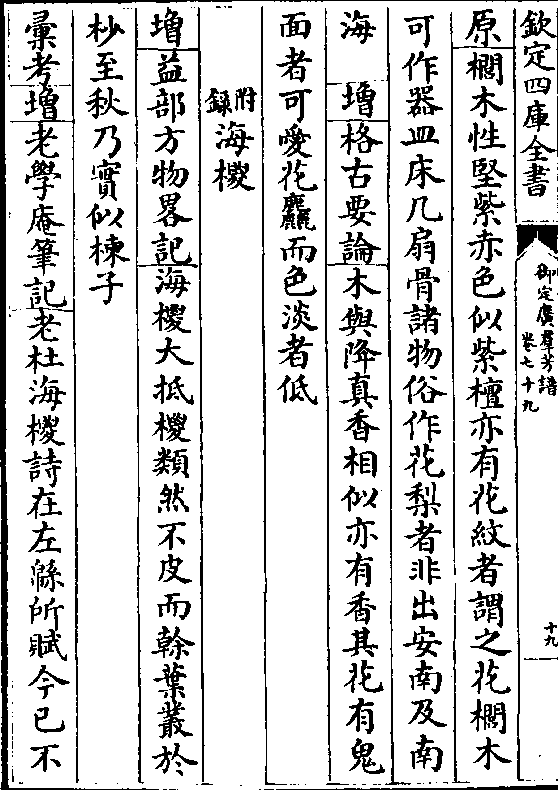 欽定四庫全書
御定廣羣芳譜
卷七十九
十九
原櫚木性堅紫赤色似紫檀亦有花紋者謂之花櫚木
可作器皿床几扇骨諸物俗作花梨者非出安南及南
海　增格古要論木與降真香相似亦有香其花有鬼
面者可愛花麤而色淡者低
附錄海椶
增益部方物畧記海椶大抵椶類然不皮而幹葉叢於
杪至秋乃實似楝子
彙考增老學庵筆記老杜海椶詩在左緜所賦今已不